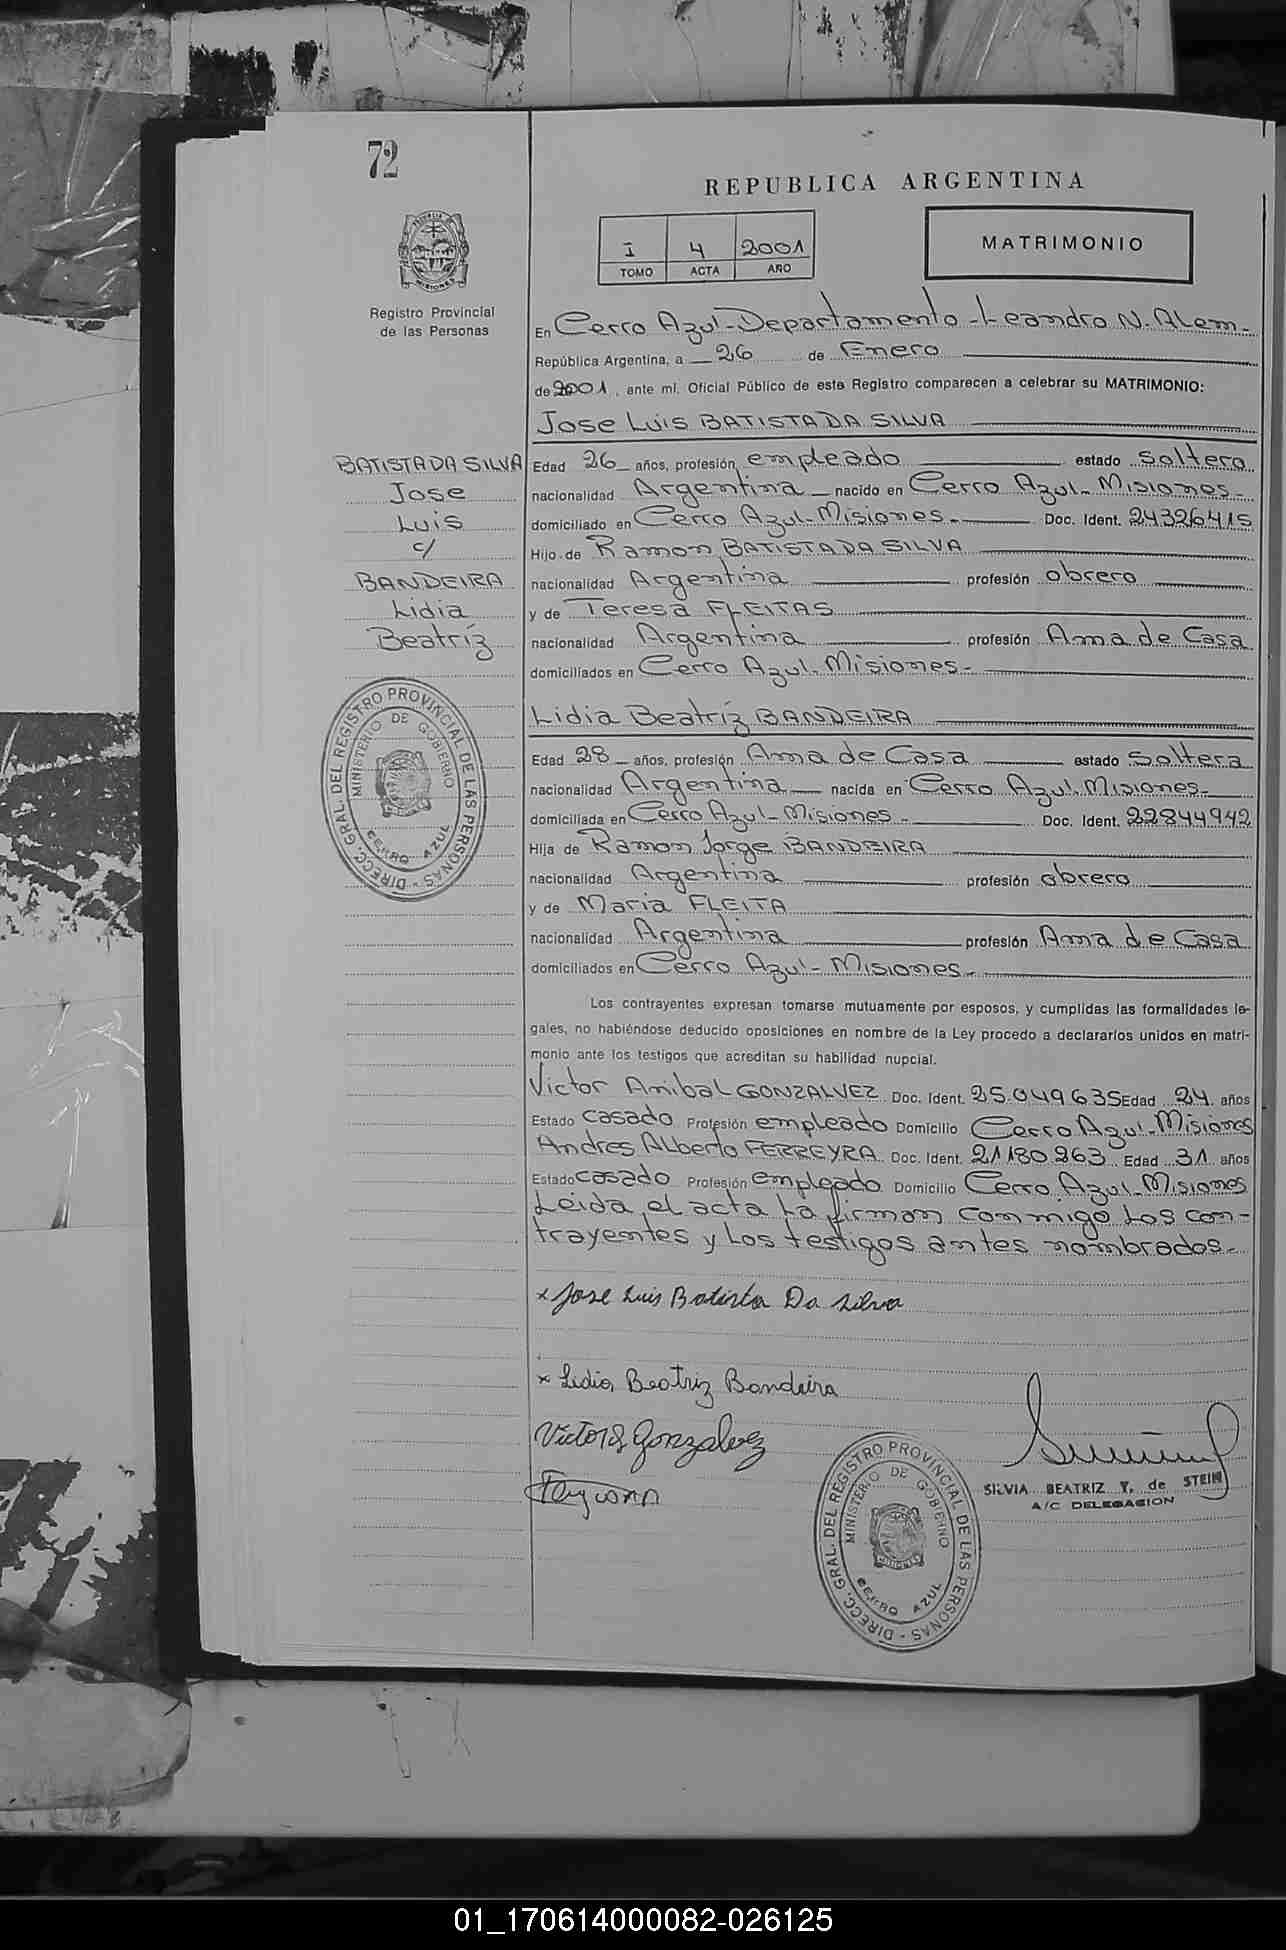 72
REPUBLICA ARGENTINA
I 4 2001
TOMO ACTA AÑO
MATRIMONIO
Registro Provincial
de las Personas
En Cerro Azul-Departamento-Leandro N. Alem-
República Argentina, a 26 de Enero
de 2001, ante mí, Oficial Público de este Registro comparecen a celebrar su MATRIMONIO:
Jose Luis BATISTA DA SILVA
BATISTA DA SILVA
Jose
Luis
c/
BANDEIRA
Lidia
Beatríz
Edad 26 años, profesión empleado estado soltero
nacionalidad Argentina nacido en Cerro Azul-Misiones-
domiciliado en Cerro Azul-Misiones- Doc. Ident. 24326415
Hijo de Ramon BATISTA DA SILVA
nacionalidad Argentina profesión obrero
y de Teresa FLEITAS
nacionalidad Argentina profesión Ama de Casa
domiciliados en Cerro Azul-Misiones-
Lidia Beatríz BANDEIRA
Edad 28 años, profesión Ama de Casa estado soltera
nacionalidad Argentina nacida en Cerro Azul-Misiones-
domiciliada en Cerro Azul-Misiones- Doc. Ident. 22844942
Hija de Ramon Jorge BANDEIRA
nacionalidad Argentina profesión obrero
y de Maria FLEITA
nacionalidad Argentina profesión Ama de Casa
domiciliados en Cerro Azul-Misiones-
Los contrayentes expresan tomarse mutuamente por esposos, y cumplidas las formalidades le-
gales, no habiéndose deducido oposiciones en nombre de la Ley procedo a declararlos unidos en matri-
monio ante los testigos que acreditan su habilidad nupcial.
Victor Anibal GONZALVEZ Doc. Ident. 25.049635 Edad 24 años
Estado casado Profesión empleado Domicilio Cerro Azul-Misiones
Andres Alberto FERREYRA Doc. Ident. 21180263 Edad 31 años
Estado casado Profesión empleado Domicilio Cerro Azul-Misiones
Leida el acta la firman conmigo los con-
trayentes y los testigos antes nombrados-
x Jose Luis Batista Da Silva
x Lidia Beatriz Bandeira
Victor Gonzalvez
SILVIA BEATRIZ Y. de STEIN
A/C DELEGACION
DIRECC. GRAL. DEL REGISTRO PROVINCIAL DE LAS PERSONAS
MINISTERIO DE GOBIERNO
CERRO AZUL
DIRECC. GRAL. DEL REGISTRO PROVINCIAL DE LAS PERSONAS
MINISTERIO DE GOBIERNO
CERRO AZUL
01_170614000082-026125